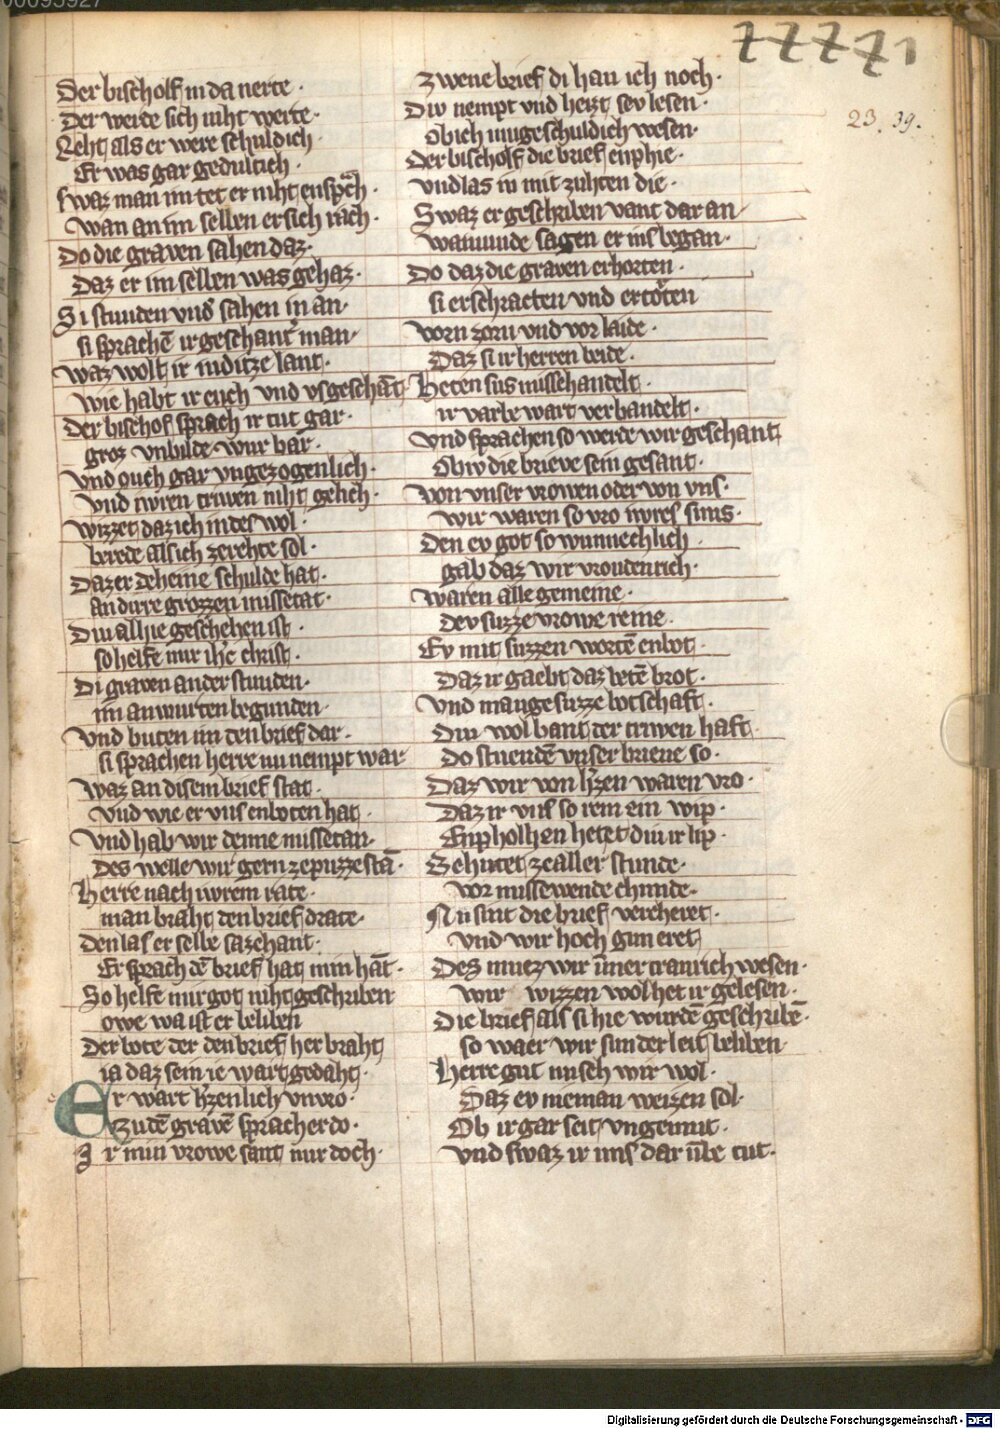 00095927
77771
23. 39.
Der bischolf in da nerte ·
Der werde sich niht werte ·
Reht als er were schuldich
Er was gar gedultich ·
Swaz man im tet er niht enspͣch ·
wan an im selben er sich rach ·
Do die graven sahen daz ·
Daz er im selben was gehaz ·
Si stunden vnd sahen in an ·
si sprachē ir geschant man ·
waz wolt ir in ditze lant ·
wie habt ir euch vnd vſgeschāt
Der bischof sprach ir tut gar ·
groz vnbilde wur bar ·
vnd ouch gar vngezogenlich ·
vnd iwren triwen niht gelich ·
wizzet daz ich in des wol ·
berede als ich zerehte sol ·
Daz er deheine schulde hat ·
an dirre grozzen missetat ·
Diu alhie geschehen ist ·
so helfe mir ihc christ ·
Di graven an der stunden ·
im anwurten begunden ·
vnd buten im den brief dar ·
si sprachen herre nu nempt war
waz an disem brief stat ·
vnd wie er vns enboten hat ·
vnd hab wir denne missetan ·
des welle wir gern zepuzze stā ·
Herre nach iwrem rate ·
man braht den brief drate ·
den las er selbe sazehant ·
Er sprach dē brief hat min hāt ·
So helfe mir got niht geschriben
owe wa ist er beliben
Der bote der den brief her braht
ia daz sein ie wart gedaht ·
Er wart hzenlich vnvro ·
zu dē gravē sprach er do ·
Ir min vrowe sant mir doch ·
zwene brief di han ich noch ·
Div nempt vnd heizt sev lesen ·
Ob ich mug schuldich wesen ·
Der bischolf die brief enphie ·
vnd las in mit zuhten die ·
Swaz er geschriben vant dar an
wanunde sagen er ins began ·
Do daz die graven erhorten ·
si erschracten vnd ertoten
vorn zorn vnd vor laide ·
Daz si ir herren beide ·
Heten sus missehandelt ·
ir varbe wart verbandelt ·
vnd sprachen so werde wir geschant
Ob iv die brieve sein gesant ·
von vnser vrowen oder von vns ·
wir waren so vro iwres suns ·
Den ev got so wunnechlich
gab daz wir vroudenrich ·
waren alle gemeine ·
Dev suzze vrowe reine ·
Ev mit suzzen wortē enbot ·
Daz ir gaebt daz betē brot ·
vnd mange suzze botschaft ·
Diu wol bant der triwen haft
do stuendē vnser brieue so ·
Daz wir von hzen waren vro ·
Daz ir vns so rein ein wip ·
Enpholhen hetet diu ir lip ·
Behutet ze aller stunde ·
vor missewende chunde ·
Nu sint die brief vercheret ·
vnd wir hoch gun eret
Des muez wir ūmer traurich wesen ·
wir wizzen wol het ir gelesen ·
Die brief als si hie wurdē geschribē ·
so waer wir sunder leit beliben
Herre gut nu seh wir wol ·
Daz ev nieman weizen sol
Ob ir gar seit vngemut ·
vnd swaz ir uns dar ūbe tut ·
Digitalisierung gefördert durch die Deutsche Forschungsgemeinschaft - DFG